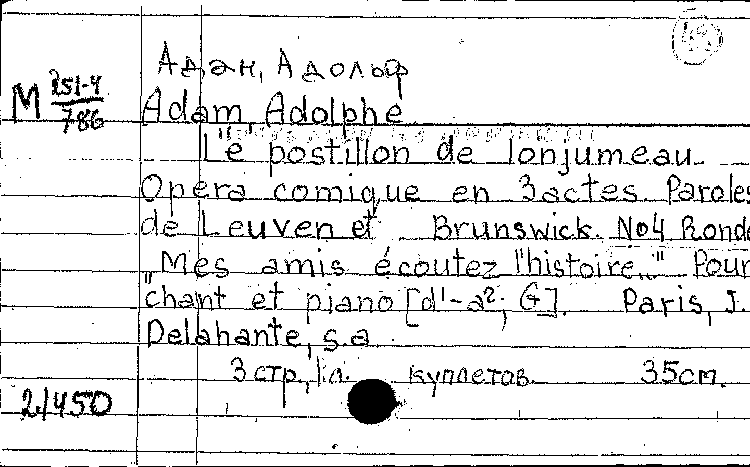 Адан, Адольф
М 251-4/786
Adam, Adolphe
Le postillon de lonjumeau.
Opera comique en 3 actes Paroles
de Leuven et Brunswick. No4 Ronde
"Mes amis écoutez l'histoire..." Pour
chant et piano [d¹-a²; G]. Paris, J.
Delahante, s.a.
3 стр., 1 л. куплетов. 35см.
21450